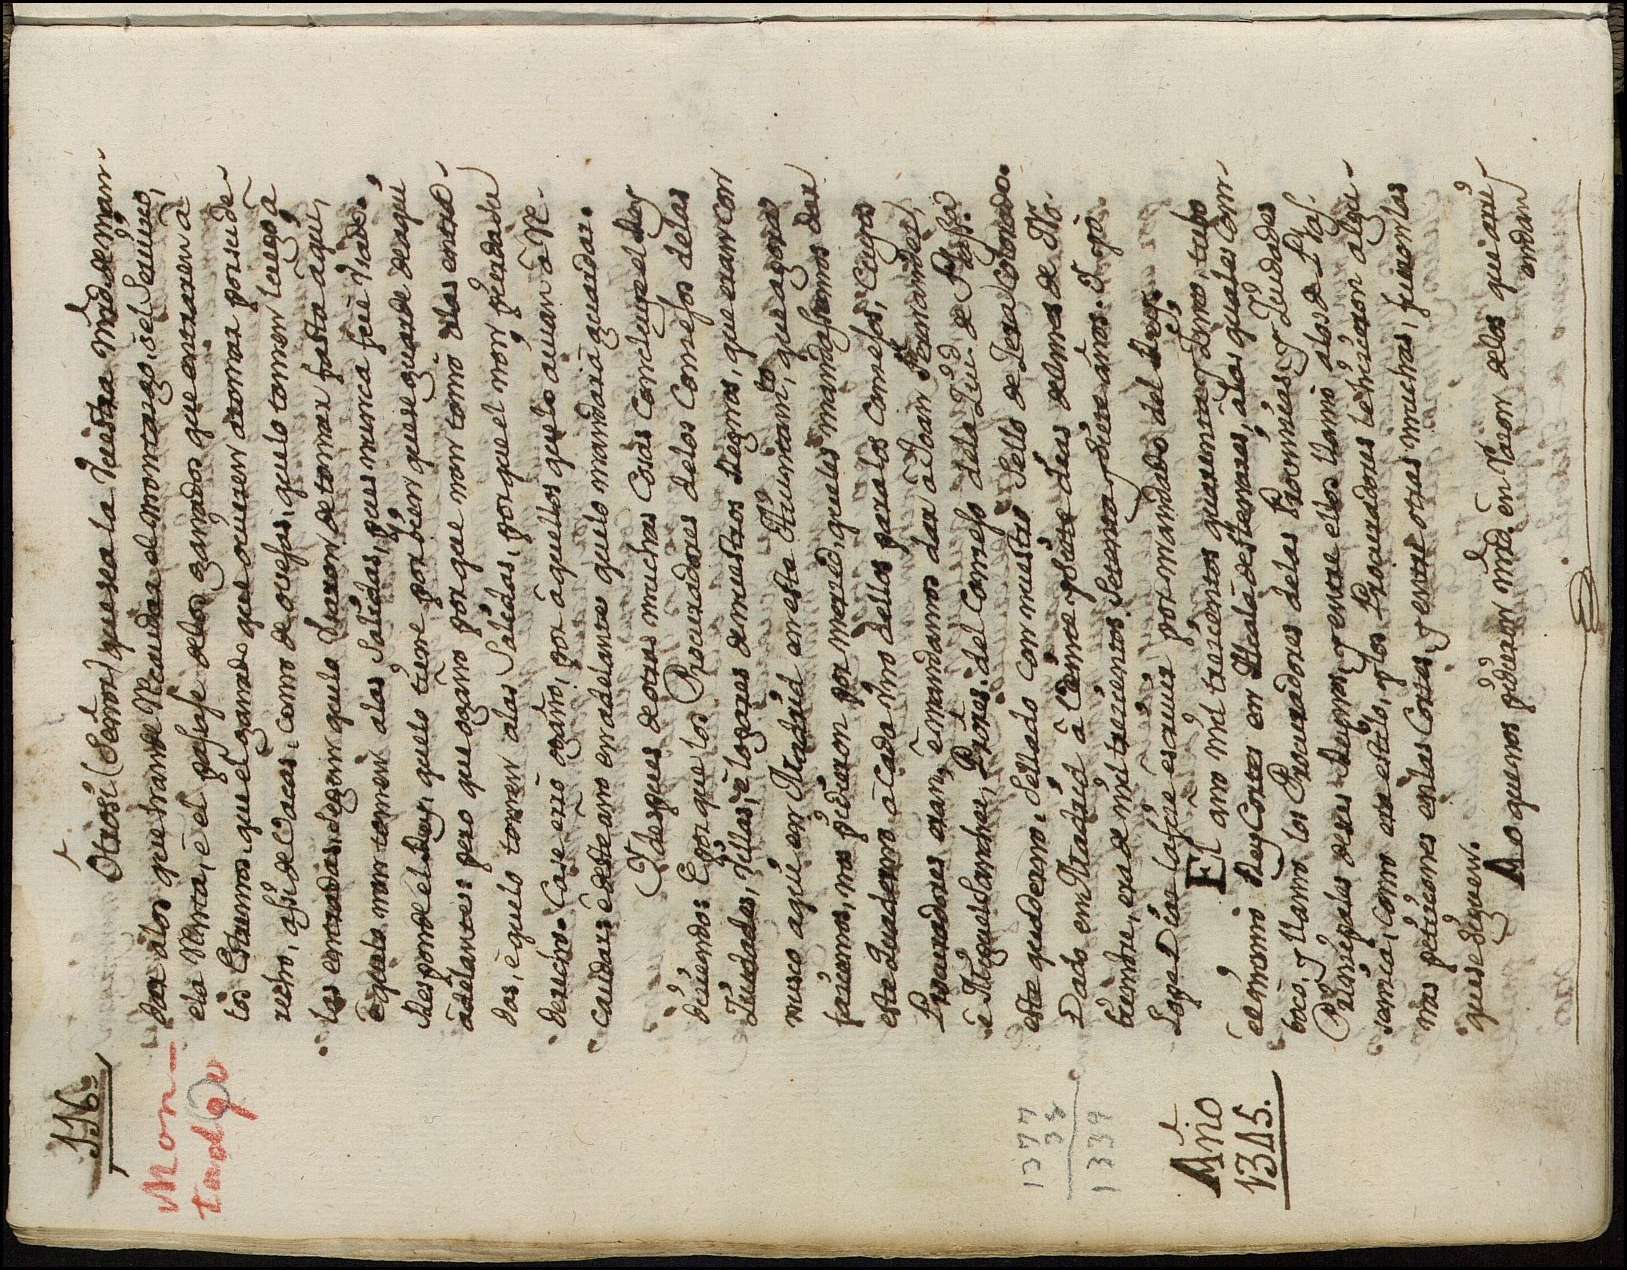 116.
Mon-
tadgo
Otrosi (Señor) que sea la Vuestra mrd. de man-
dar a los que han de Recaudar el montazgo, è el Servicio,
e la Renta, è el pasage de los ganados que entraren à
los Estremos, que el ganado que ovieren de tomar por su de-
recho, asi de Vacas, como de ovejas, que lo tomen luego à
las entradas, segun que lo usaron de tomar fasta aqui,
è que lo non tomen à las Salidas, pues nunca fuè Usado.
Responde el Rey, que lo tiene por bien que se guarde de aqui
adelante: pero que ogaño porque non tomò à las entra-
das, è que lo tomen à las Salidas, porque el non pierda su
derecho. Caso ogaño, por aquellos que lo avian à Re-
caudar: è deste año en adelante que lo mandarà guardar.
Y despues de otras muchas cosas concluye el Rey
diciendo: E porque los Procuradores de los Consejos de las
Ciudades, Villas, è logares de nuestros Regnos, que eran con
nusco aqui en Madrid en este Ayuntamto. que agora
ficiemos, nos pidieron por merced, que les mandasemos dar
este Quaderno à cada uno dellos para los Consejos, cuyos
Procuradores eran, è mandamos dar à Joan Fernandez,
è Miguel Sanchez, Prores. del Consejo de la Ciud. de Plasa.
este quaderno, Sellado con nuestro Sello de Cera colgado.
Dado en Madrid à veinte dias de
bre, era de mil trecientos Setenta y siete años. Yo
Lope Diaz la fice escrivir por mandado del Rey.
Año
1345.
1377
38
1339
El año mil trecientos quarenta y cinco tubo
el mismo Rey Cortes en Alcalà de Henares, à las quales con-
bocò, y llamò los Procuradores de las Provincias, y Ciudades
Principales de sus Reynos, y entre ellos llamò à los de Plas-
sencia, como era estilo, y los Procuradores le hicieron algu-
nas peticiones en las Cortes, y entre otras muchas, fueron las
que se siguen.
A lo que nos pidieron mrd. en Raçon de los que arri-
endan